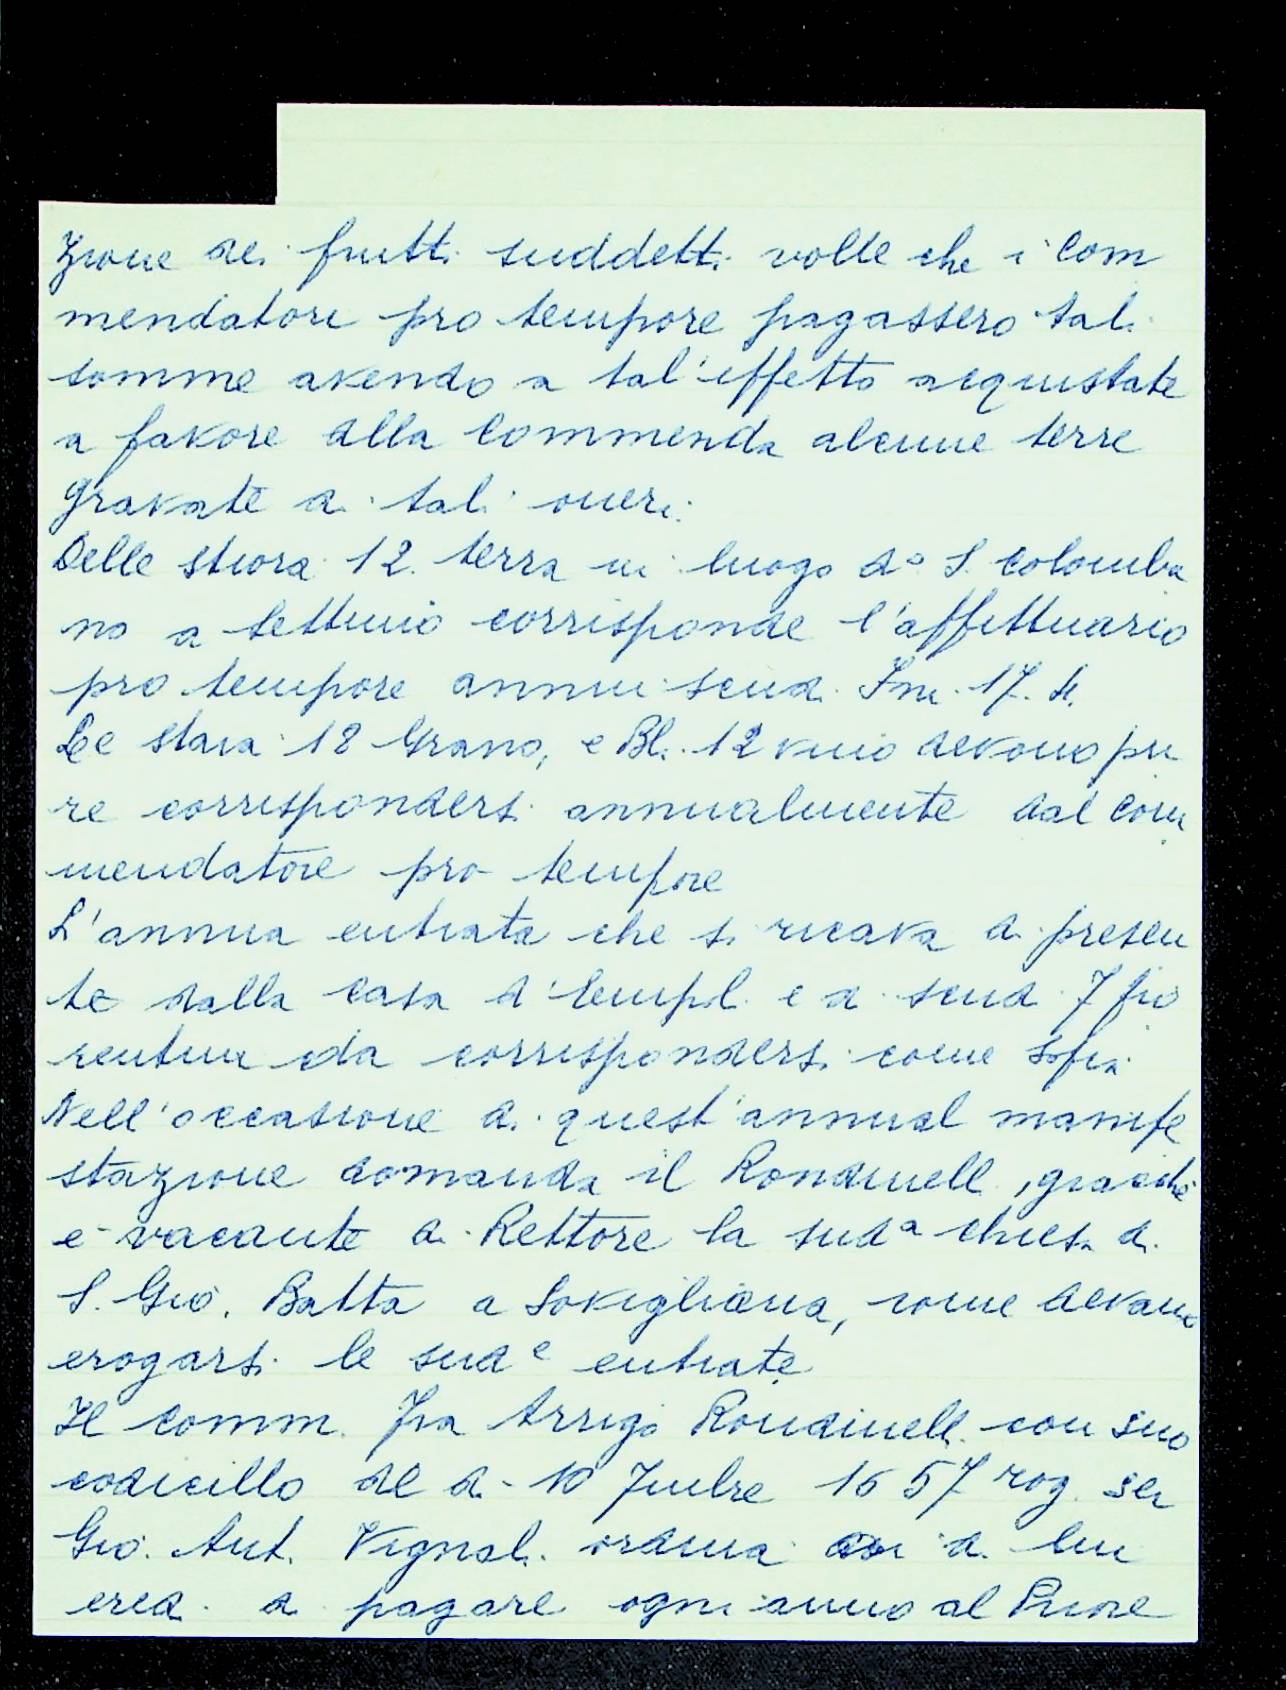 zione dei frutti suddetti volle che i Com
mendatori pro tempore pagassero tali
somme avendo a tal'effetto acquistate
a favore della Commenda alcune terre
gravate di tali oneri.
Delle stiora 12. terra in luogo dº S. Colomba
no a Settimo corrisponde l'affittuario
pro tempore annui scudi 17.
Le staia 18 Grano, e Bl. 12 vino devono pu
re corrispondersi annualmente dal Com
mendatore pro tempore
L'annua entrata che si ricava di presen
te dalla casa d'Empoli e di scudi 7 fio
rentini da corrispondersi come sopra
Nell'occasione di quest'annual manife
stazione domanda il Rondinelli, giacché
è vacante di Rettore la sudª chiesa di
S. Gio. Batta a Sovigliana, come devano
erogarsi le sudᵉ entrate
Il Comm. Fra Arrigo Rondinelli con suo
codicillo del dì 10 7mbre 1657 rog. ser
Gio. Ant. Vignali ordina di lui
eredi a pagare ogni anno al Priore